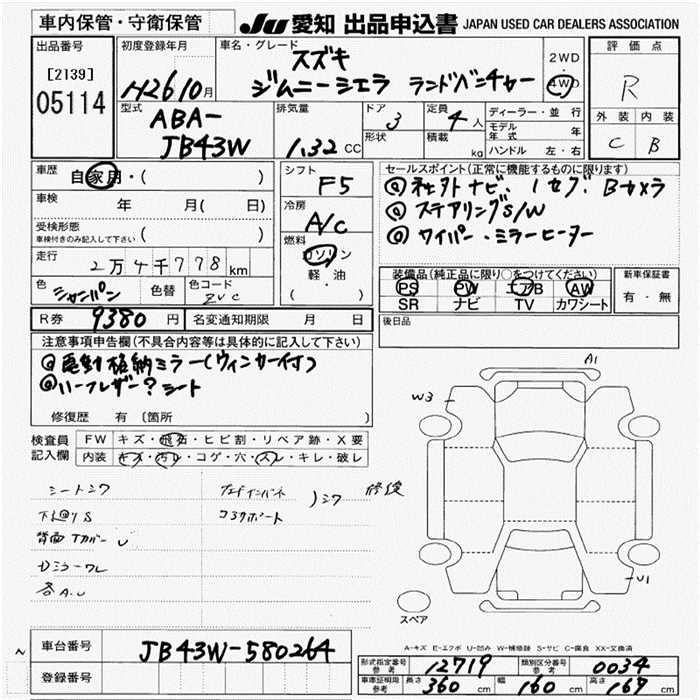 車内保管・守衛保管
JU 愛知 出品申込書 JAPAN USED CAR DEALERS ASSOCIATION
出品番号
[2139]
05114
初度登録年月
H26 10月
車名・グレード
スズキ
ジムニーシエラ ランドベンチャー
2WD
・
4WD
評価点
R
外装 内装
C B
型式
ABA-
JB43W
排気量
1.32 CC
ドア
3
形状
定員
4 人
積載
kg
ディーラー・並行
モデル年式 年
ハンドル 左・右
車歴
自家用・( )
車検
年 月( 日)
受検形態
車検付きのみ記入して下さい ( )
走行
2万4千778km
色
シャンパン
色替
色コード
ZVC
シフト
F5
冷房
A/C
燃料
ガソリン
軽・油
( )
セールスポイント(正常に機能するものに限ります)
@社外ナビ、1セグ、Bカメラ
@ステアリングS/W
@ワイパー・ミラーヒーター
装備品(純正品に限り○をつけてください)
PS PW エアB AW
SR ナビ TV カワシート
新車保証書
有・無
R券 9380円 名変通知期限 月 日
後日品
注意事項申告欄(不具合内容等は具体的に記入して下さい)
@電動格納ミラー(ウィンカー付)
@ハーフレザー?シート
修復歴 有 (箇所 )
検査員
記入欄
FW キズ・飛石・ヒビ割・リペア跡・X要
内装 キズ・汚レ・コゲ・穴・スレ・キレ・破レ
シートシワ
背面Tカバー U
Dミラーワレ
各A.U
コアサポート
)シワ
修復
A1
W3
U1
スペア
A-キズ E-エクボ U-凹み W-補修跡 S-サビ C-腐食 XX-交換済
車台番号 JB43W-580264
登録番号
形式指定番号
参考
12719
類別区分番号
参考
0034
車庫証明用
参考
長さ 360 cm 幅 160 cm 高さ 167 cm